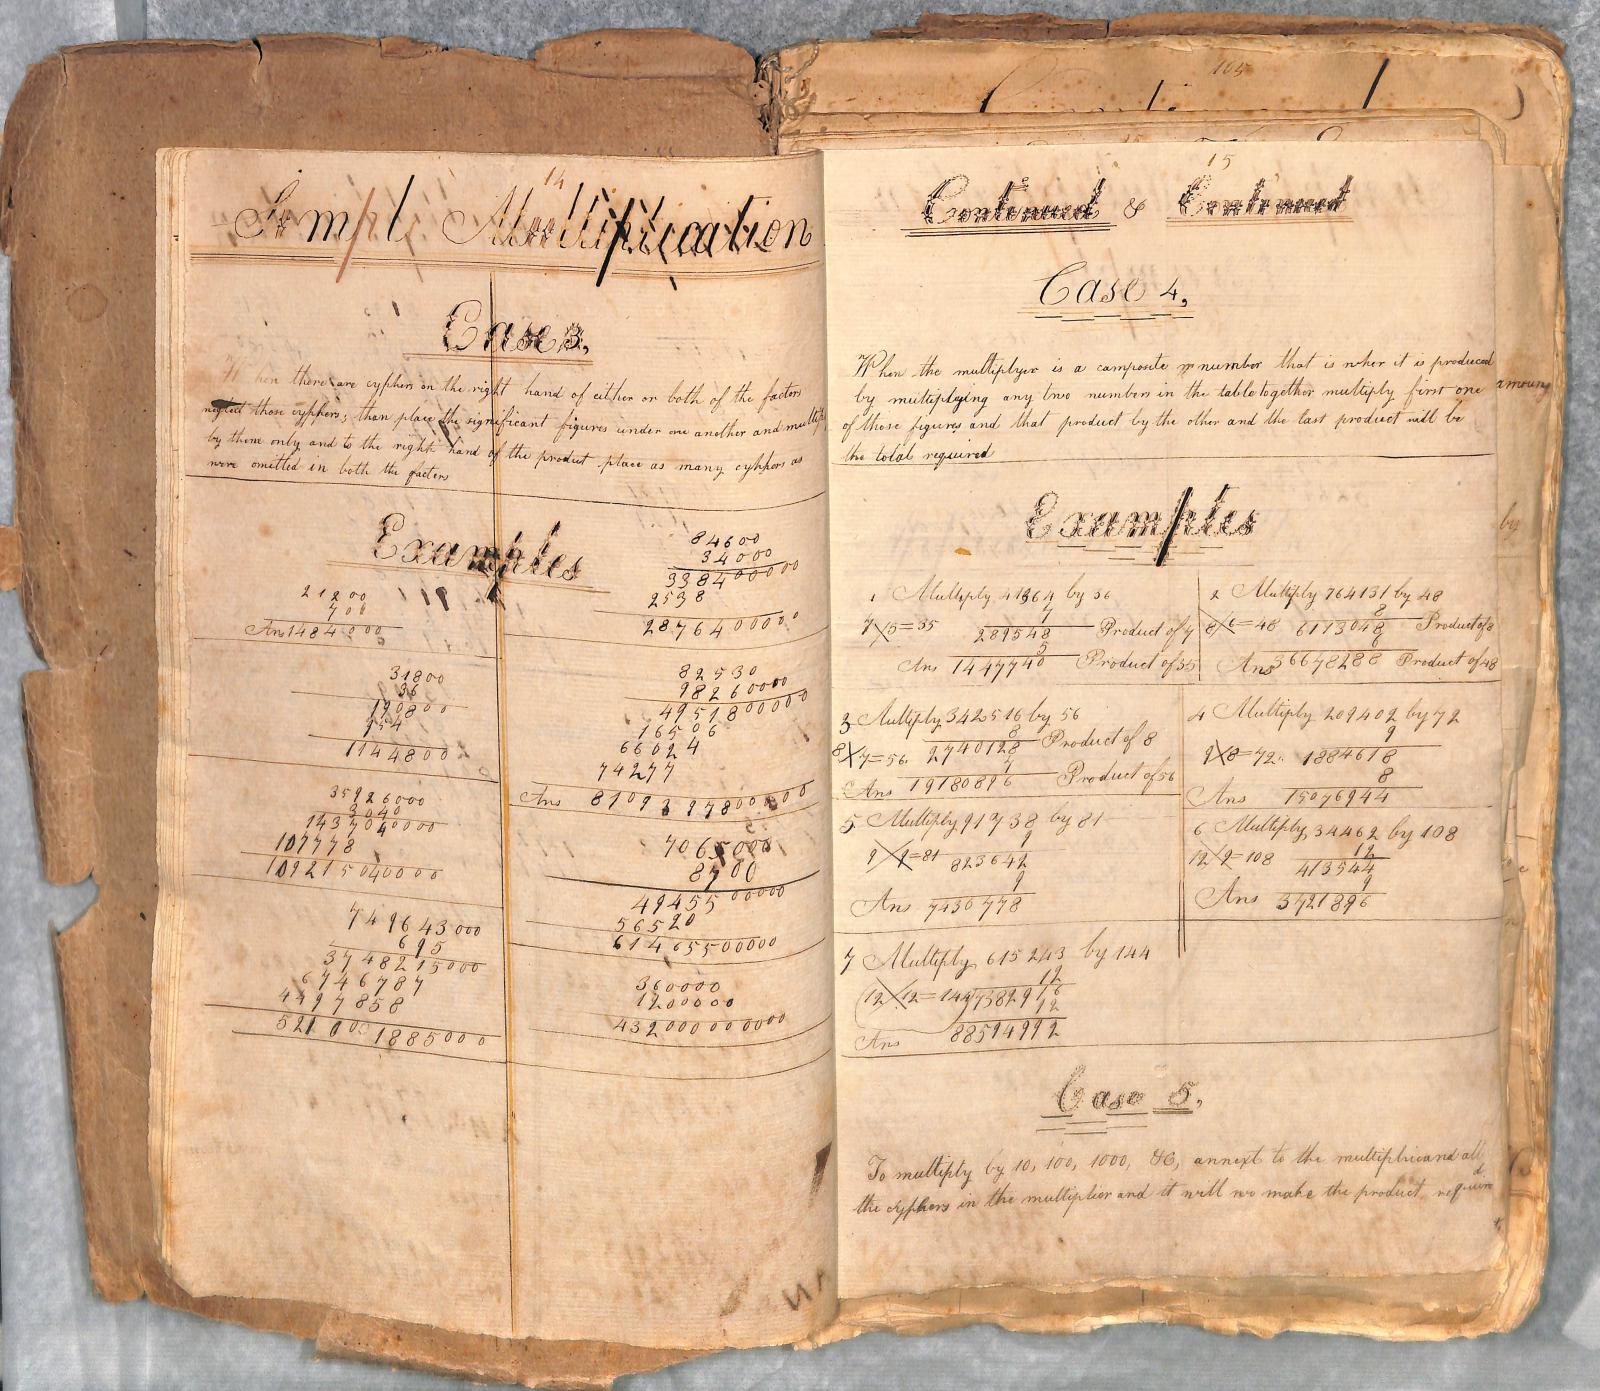 14
Simpl Multiplication
Case 3,
When there are cyphers on the right hand of either or both of the factors
neglect those cyphers; than place the significant figures under one another and multiply
by them only and to the right hand of the product place as many cyphers as
were omitted in both the factors
Examples
21200
700
Ans 14840000
31800
36
190800
954
1144800
35926000
3040
1437040000
107778
109215040000
749643000
695
3748215000
6746787
4497858
521001885000
84600
34000
338400000
2538
2876400000
82530
98260000
4951800000
16506
66024
74277
Ans
7065000
8700
4945500000
56520
61465500000
360000
1200000
432000000000
105
15
Continued & Continued
Case 4,
When the multiplyer is a composite number that is when it is produced
by multiplying any two numbers in the table together multiply first one among
of those figures and that product by the other and the last product will be
the total required
Examples
1 Multiply 41364 by 36
7
7X5=35 289548 Product of 7
5
Ans 1447740 Product of 35
2 Multiply 764131 by 48
8
8X6=48 6113048 Product of 8
6
Ans 36678288 Product of 48
3 Multiply 342516 by 56
8
8X7=56 2740128 Product of 8
7
Ans 19180896 Product of 56
4 Multiply 209402 by 72
9
9X8=72 1884618
8
Ans 15076944
5 Multiply 91738 by 81
9
9X9=81 823642
9
Ans 7430778
6 Multiply 34462 by 108
12
12X9=108 413544
9
Ans 3721896
7 Multiply 615243 by 144
12
12X12=144 7382916
12
Ans 88594992
Case 5,
To multiply by 10, 100, 1000, &c, annext to the multiplicand all
the cyphers in the multiplier and it will make the product required